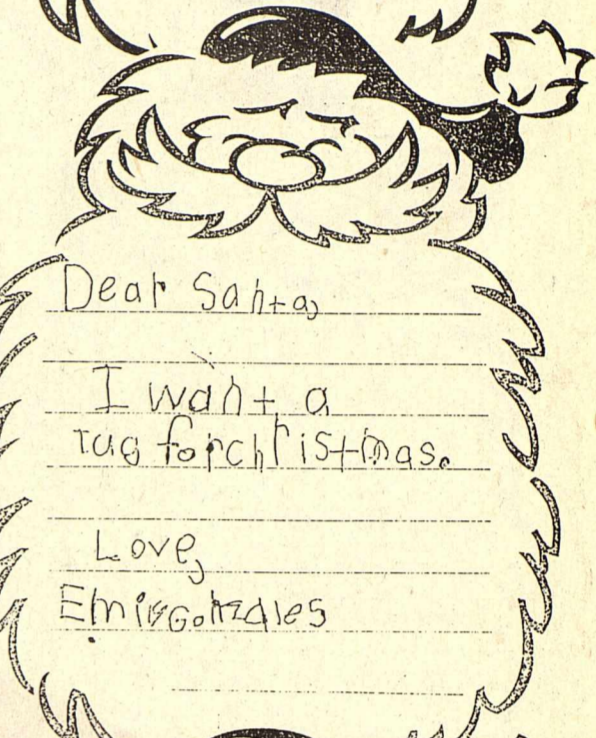 Dear Santa,
I want a
rug for christmas.
Love,
Gonzales